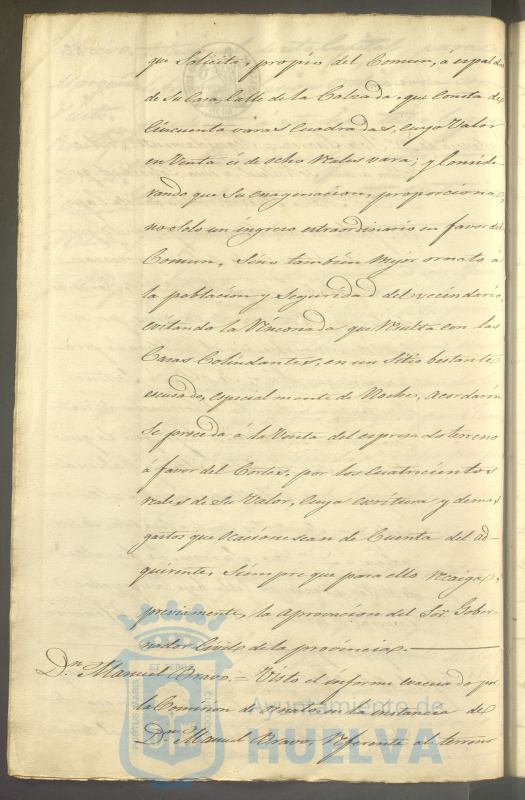 que Solicita, propio del Comun, a espaldas
de Su Casa, Calle de la Calzada, que consta de
Cincuenta varas cuadradas, cuyo Valor
en Venta es de ocho reales vara; y Conside
rando que Su enagenacion, proporciona,
no solo un ingreso extraordinario en favor del
Comun, Sino tambien mejor ornato á
la poblacion y Seguridad del vecindario,
evitando la Rinconada que resulta con las
Casas Colindantes, en un Sitio bastante
escusado, especialmente de Noche, acordaron
Se proceda á la Venta del espresado terreno
á favor del Cortes, por los Cuatrocientos
reales de Su Valor, Cuya escritura y demas
gastos que ocacione sean de Cuenta del ad-
quirente, Siempre que para ello recaiga,
previamente, la aprovacion del Sor. Gober-
nador Civil de la provincia.
Dn. Manuel Bravo. = Visto el informe evacuado por
la Comision de ornato en la instancia de
Dn. Manuel Bravo, referente al terreno
Ayuntamiento de
HUELVA